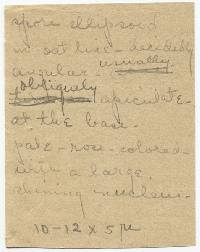 spore ellipsoid
in out line - decidedly
angular. usually
obliquely
apiculate -
at the base -
pale - rose - colored -
with a large,
shining nucleus -
10-12 x 5 µ